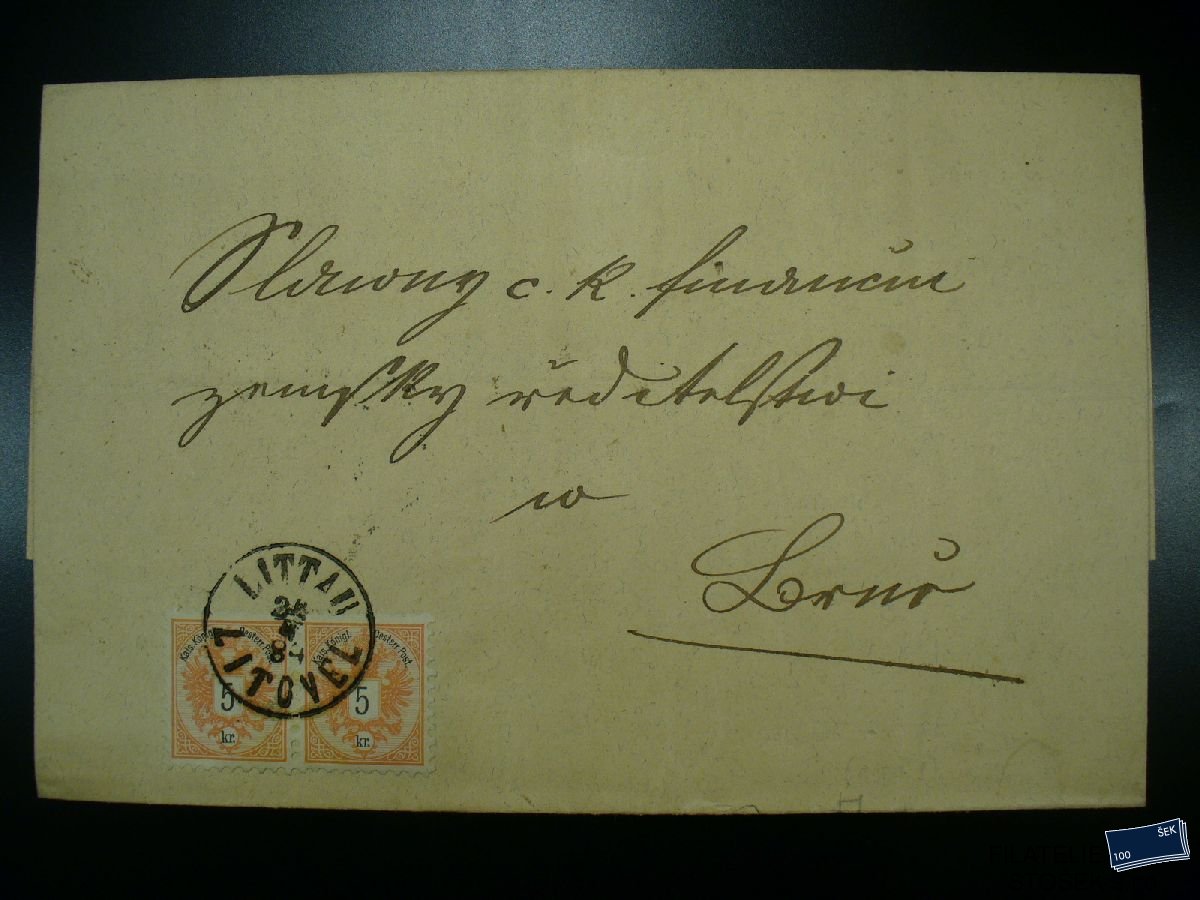 Slawny c. k. finanční
zemsky ředitelstwi
w
Brně
LITTAU
LITOVEL
84
Kais. Königl. Oesterr. Post.
5
kr.
Kais. Königl. Oesterr. Post.
5
kr.
100 ŠEK